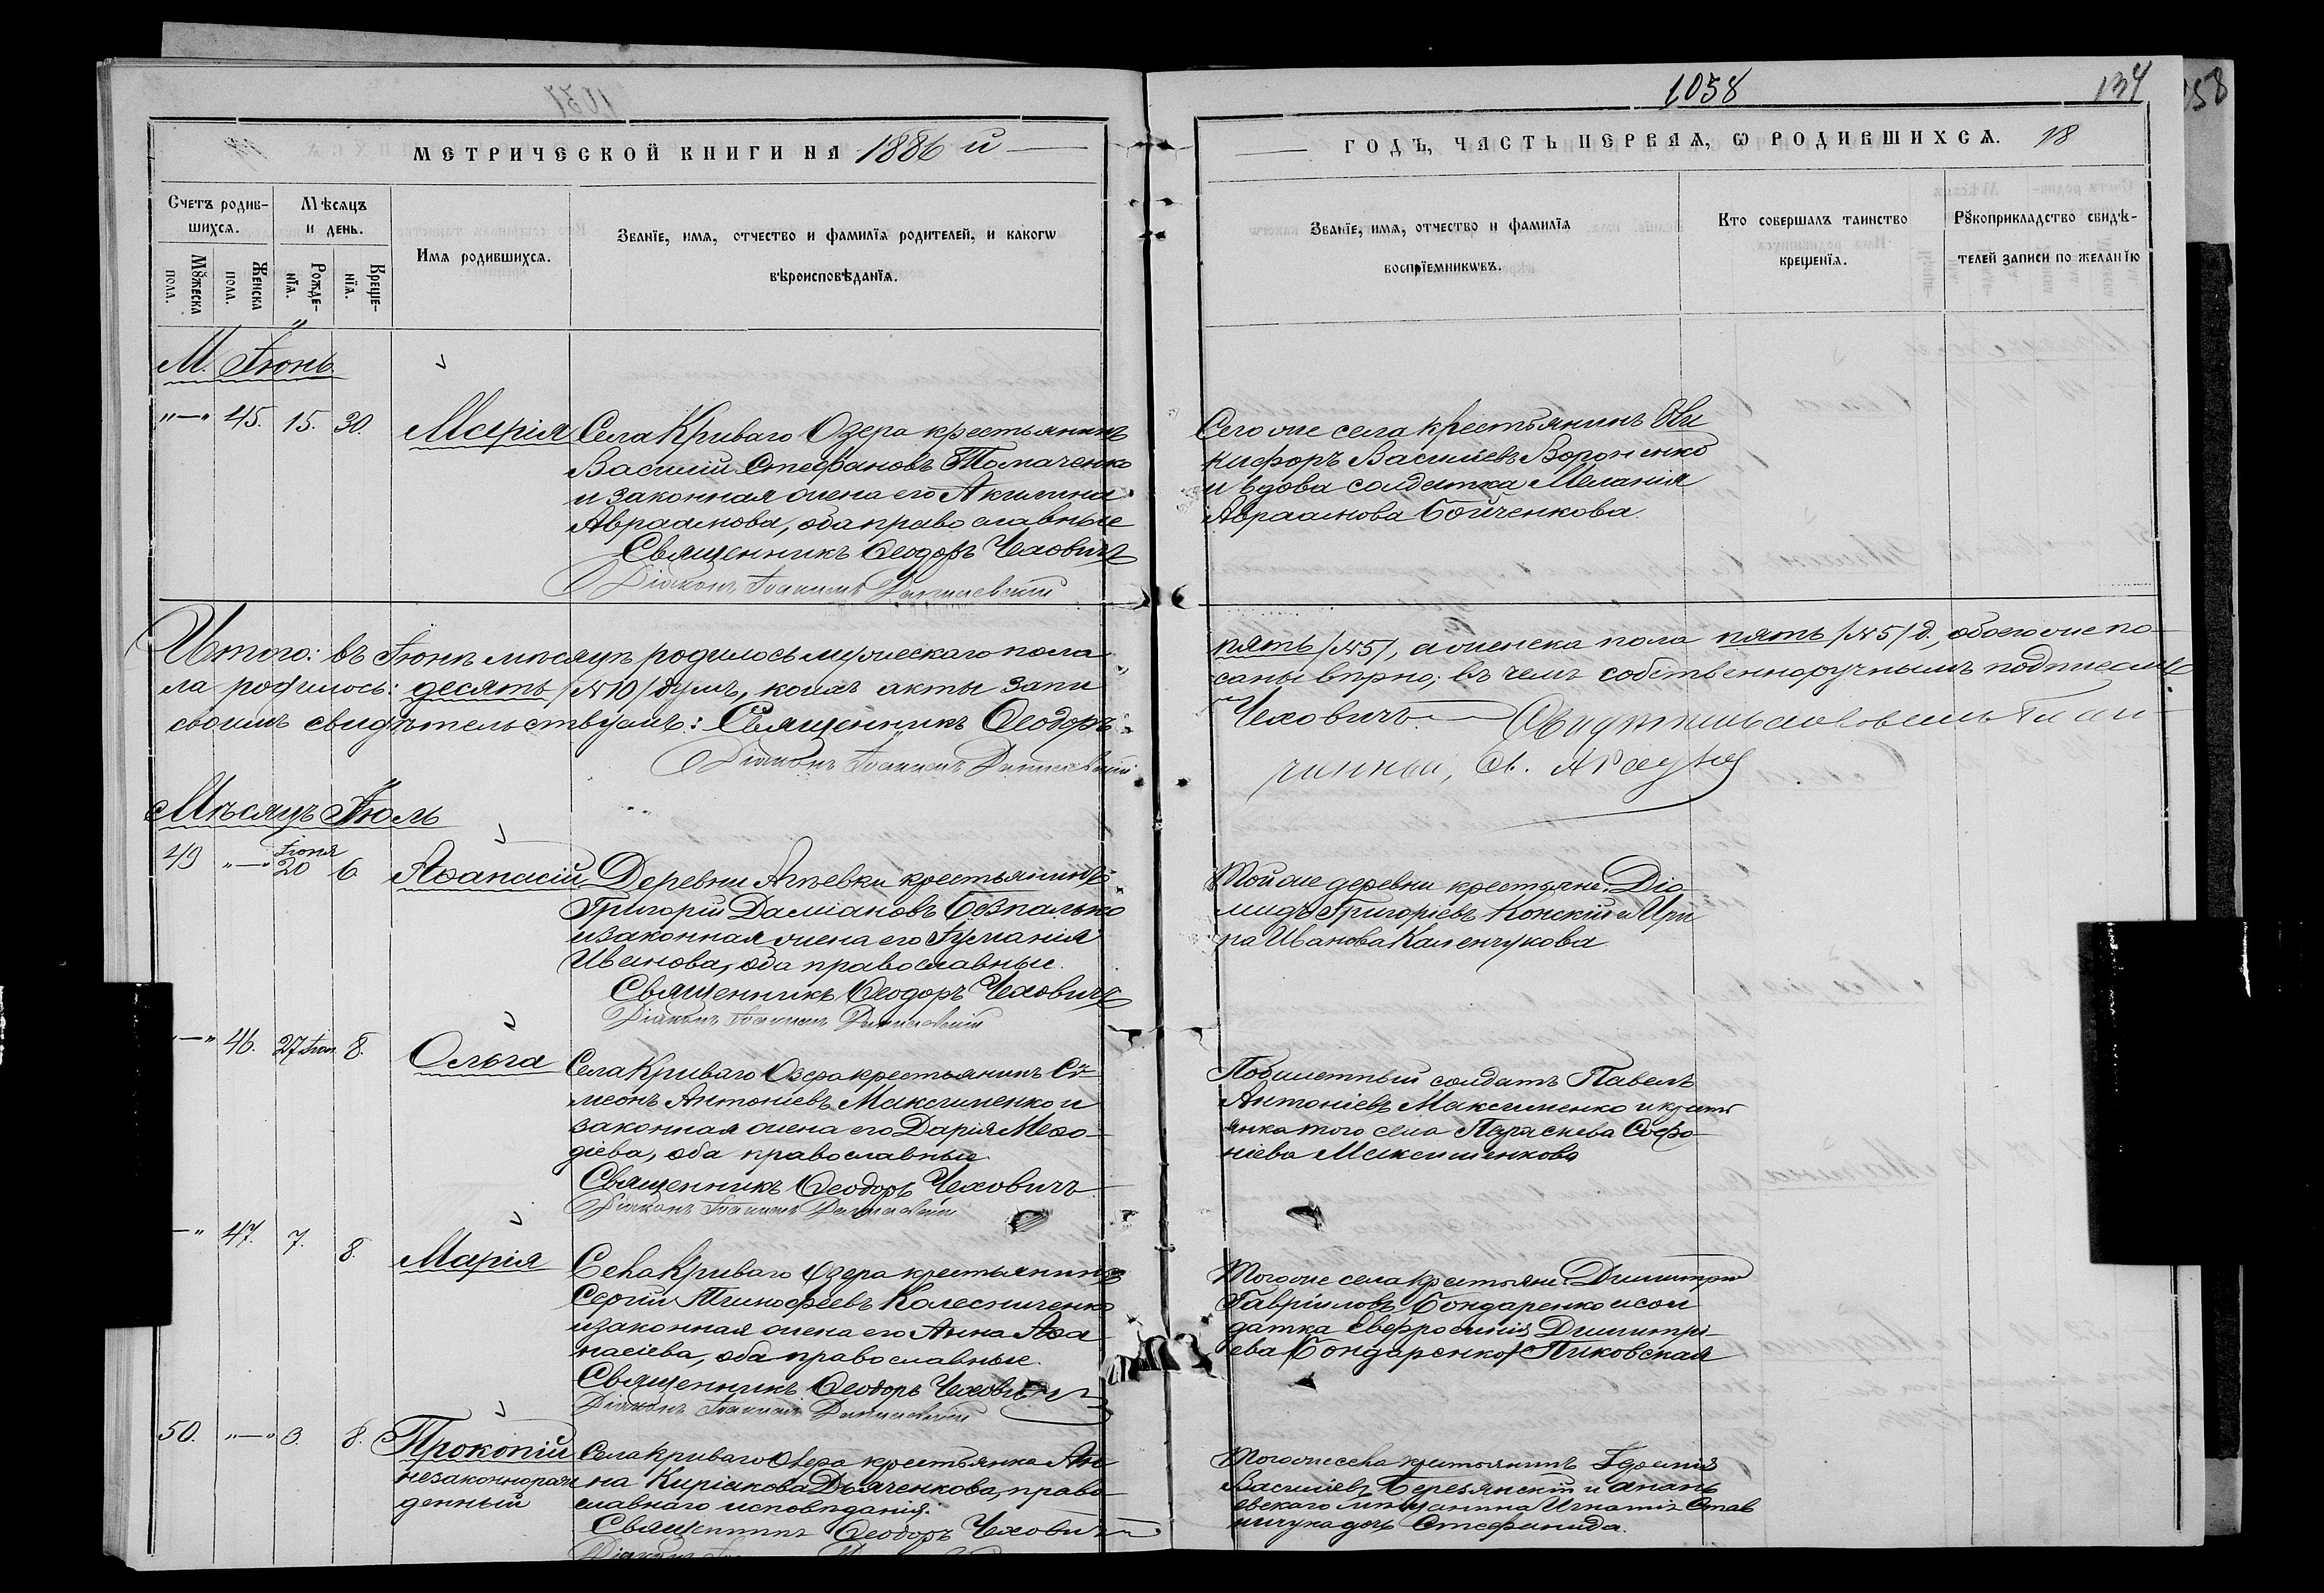 1058
134
МЕТРИЧЕСКОЙ КНИГИ НА 1886 й
ГОДЪ, ЧАСТЬ ПЕРВАЯ, Ѡ РОДИВШИХСѦ. 18
Счетъ родив-
шихсѧ.
Мѣсѧцъ
и день.
Имѧ родившихсѧ.
Званїе, имѧ, отчество и фамилїѧ родителей, и какогѡ
вѣроисповѣданїѧ.
Мꙋжеска
пола.
Женска
пола.
Рожде-
нїѧ.
Креще-
нїѧ.
Званїе, имѧ, отчество и фамилїѧ
воспрїемникѡвъ.
Кто совершалъ таинство
крещенїѧ.
Рꙋкоприкладство свидѣ-
телей записи по желанїю
М. Іюнь
"—" 45. 15. 30. Марія
Села Криваго Озера крестьянинъ
Василій Стефановъ Томаченко
и законная жена его Акилина
Авраамова, оба православные
Священникъ Ѳеодоръ Чеховичъ
Діаконъ Іоакимъ
Сего же села крестьянинъ Ни
кифоръ Васильевъ Вороненко
и вдова солдатка Меланія
Авраамова Бойченкова
Итого: въ Іюнѣ мѣсяцѣ родилось мужескаго пола
пять /№5/, а женска пола пять /№5/ д., обоего же по-
ла родилось: десять /№10/ душъ, коихъ акты запи
саны вѣрно; въ чемъ собственноручнымъ подписомъ
своимъ свидѣтельствуемъ: Священникъ Ѳеодоръ
Чеховичъ
Діаконъ Іоакимъ
Мѣсяцъ Іюль
49 "—" Іюня 20 6. Аѳанасій
Деревни крестьянинъ
Григорій Даміановъ Безпалько
и законная жена его Іуліанія
Иванова, оба православные.
Священникъ Ѳеодоръ Чеховичъ
Діаконъ Іоакимъ
Той же деревни крестьяне: Діо
мидъ Григоріевъ Конскій и Ири
на Иванова Каленчукова
—" 46. 27 Іюн. 8. Ольга
Села Криваго Озера крестьянинъ Сѵ
меонъ Антоніевъ Максименко и
законная жена его Дарія Меѳо-
діева, оба православные
Священникъ Ѳеодоръ Чеховичъ
Діаконъ Іоакимъ
Побилетный солдатъ Павелъ
Антоніевъ Максименко и крест
янка того села Параскева Софо-
ніева Максименкова
—" 47. 7. 8. Марія
Села Криваго Озера крестьянинъ
Сергій Тимофеевъ Колесниченко
и законная жена его Анна Аѳа
насіева, оба православные.
Священникъ Ѳеодоръ Чеховичъ
Діаконъ Іоакимъ
Того же села крестьяне: Димитрій
Гавріиловъ Бондаренко и сол
датка Евфросинія Димитрі-
ева Бондаренко Пиковская
50. "—" 3. 8. Прокопій
незаконнорож
денный
Села Криваго Озера крестьянка Ан
на Киріакова Дьяченкова, право
славнаго исповѣданія.
Священникъ Ѳеодоръ Чеховичъ
Того же села крестьянинъ
Васильевъ и анань
евскаго мѣщанина Игнатія Став
ничука дочь Стефанида.